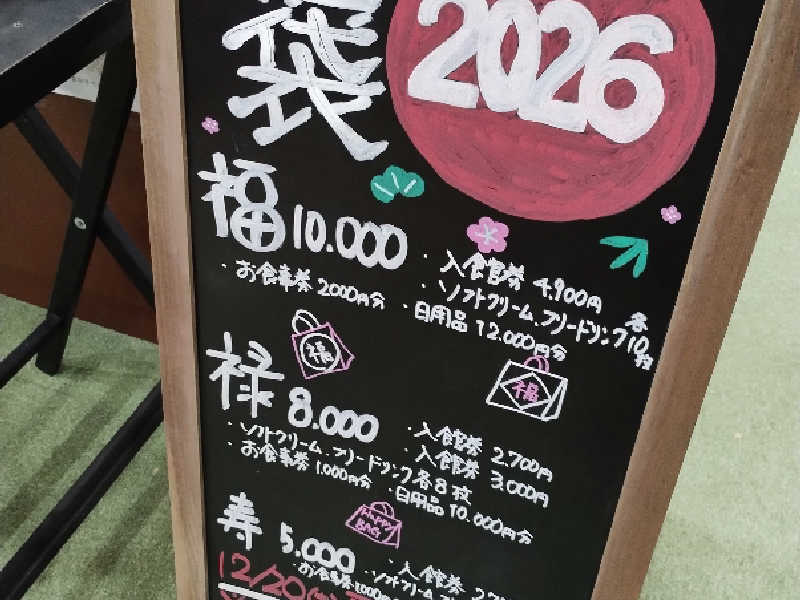 袋
2026
福 10.000
・入館券 4,900円
・お食事券 2000円分
・ソフトクリーム、フリードリンク 各10枚
・日用品 12.000円分
福
福
禄 8.000
・入館券 2.700円
・ソフトクリーム、フリードリンク各8枚
・入館券 3.000円
・お食事券 1,000円分
・日用品 10.000円分
HAPPY
BAG
寿 5.000
・入館券
・お食事券
・ソフトクリーム
12/20